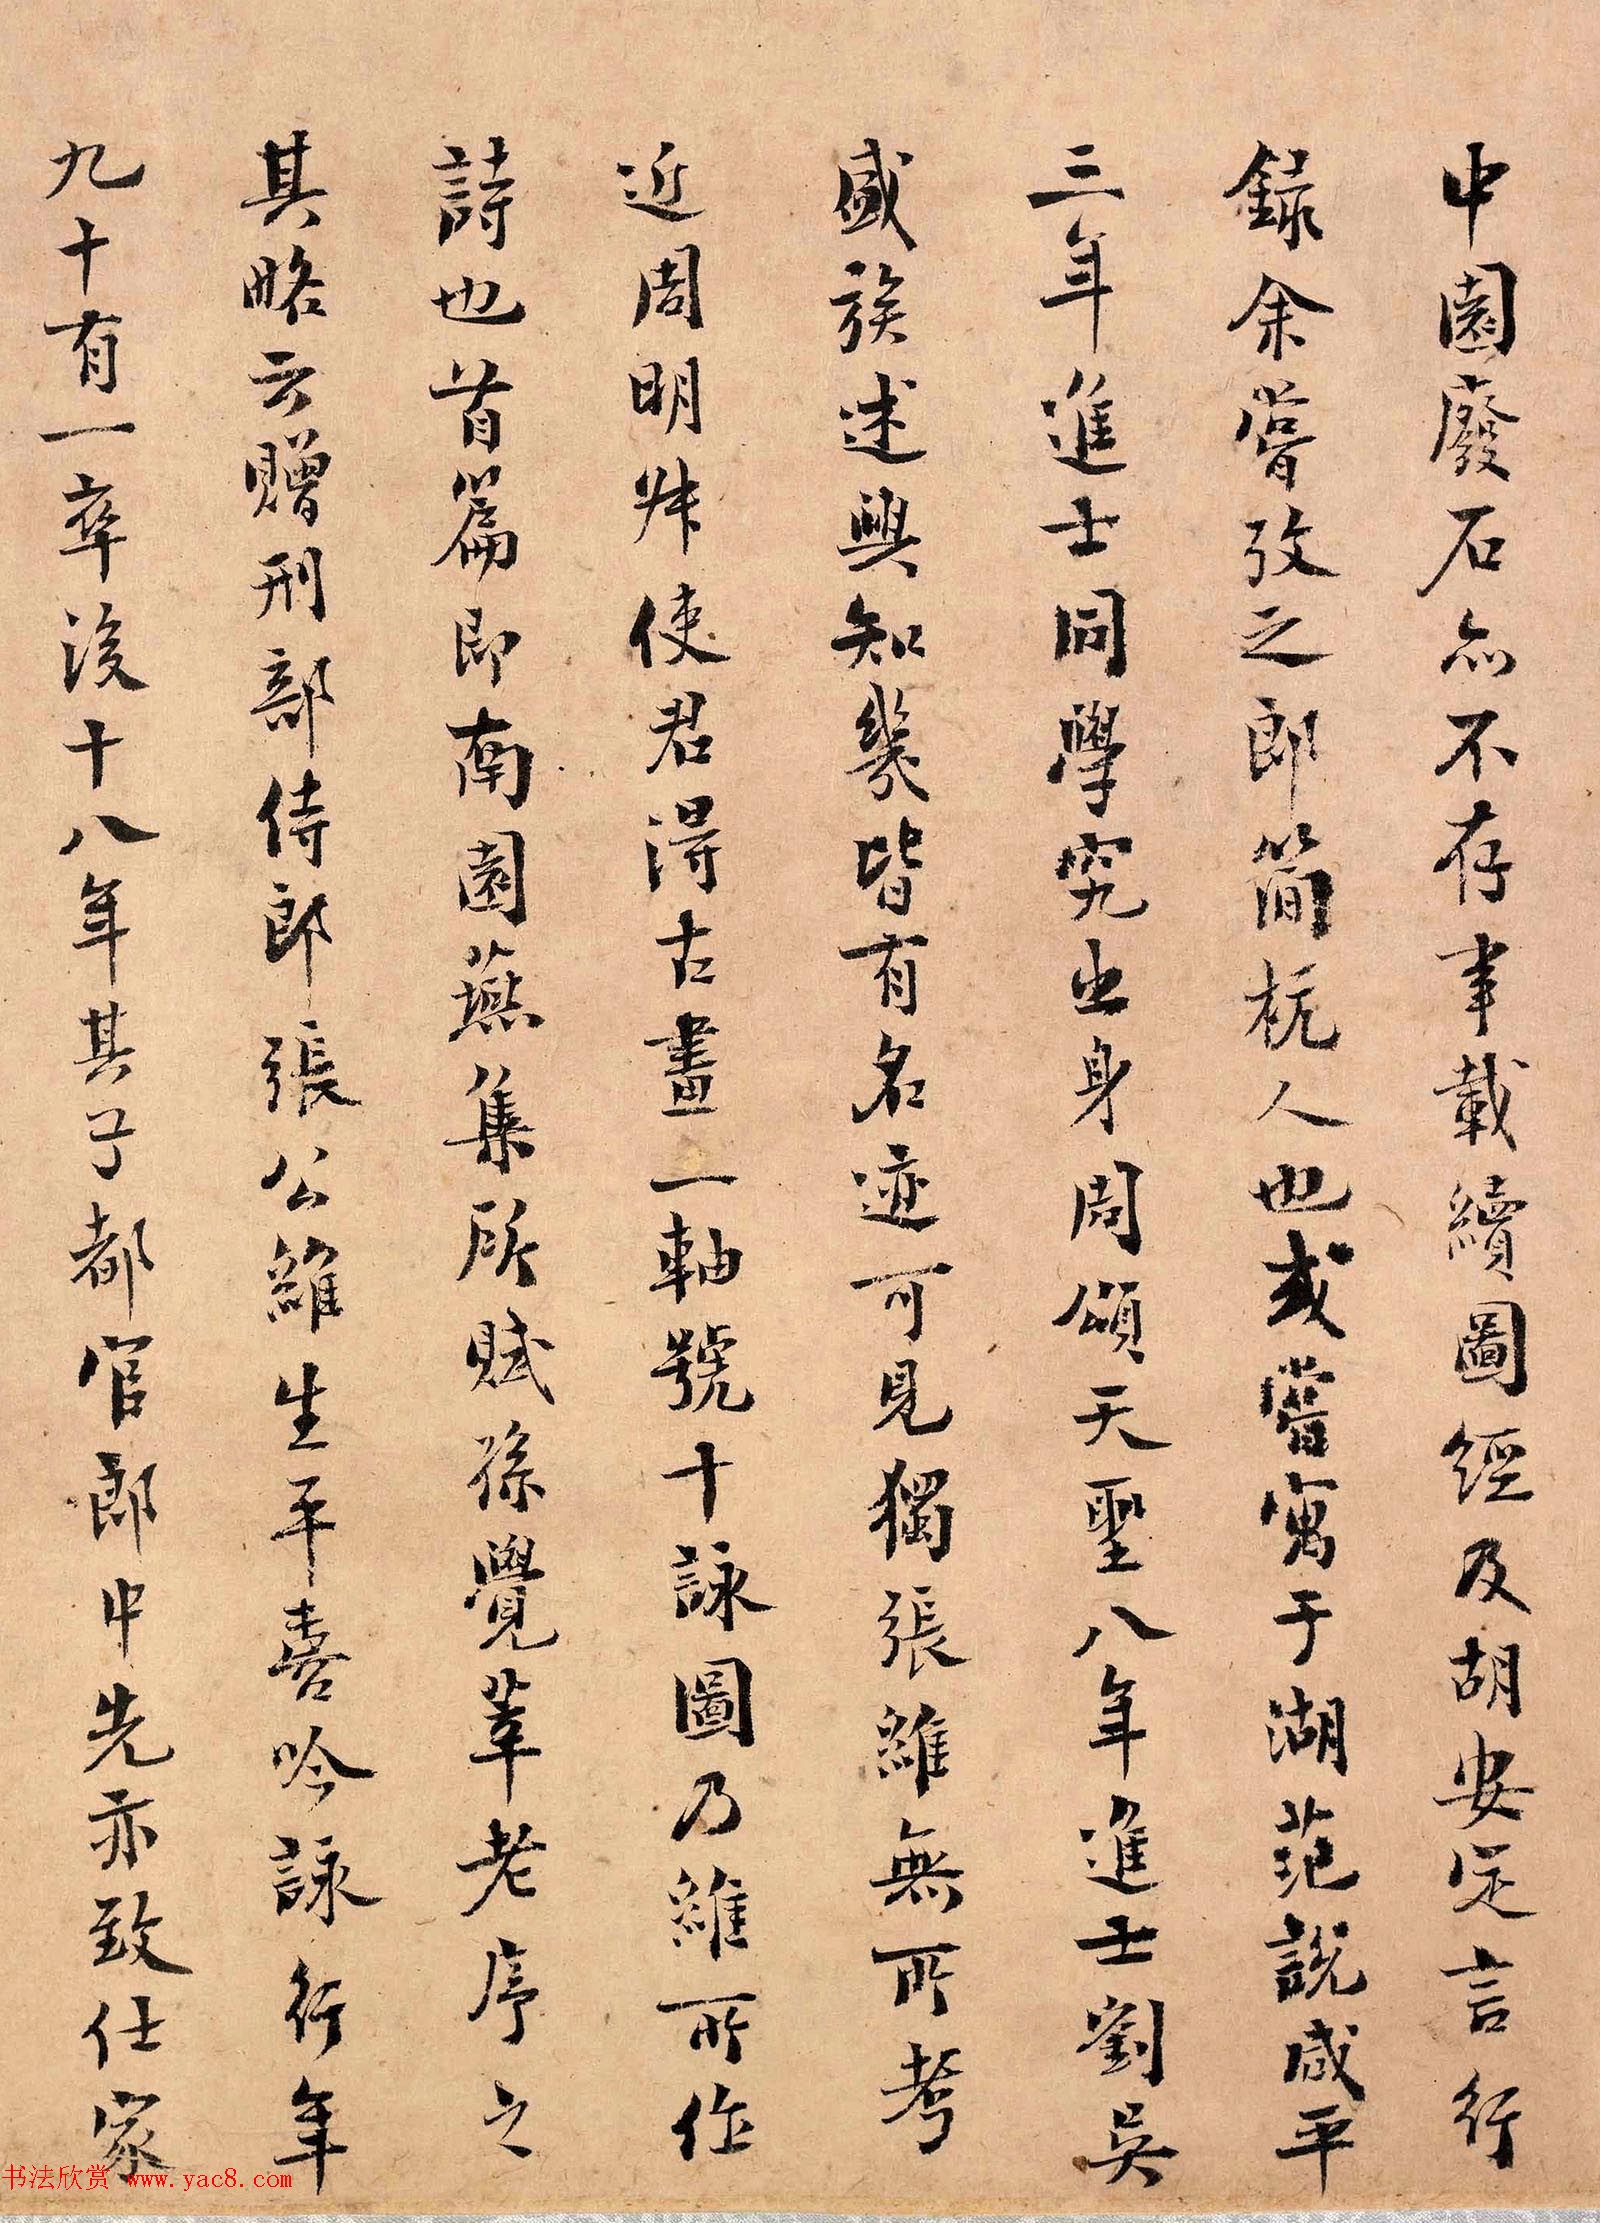 中園廢石亦不存事載續圖經及胡安定言行
録余嘗攷之郎簡杭人也或嘗寓于湖范說咸平
三年進士同學究出身周頌天聖八年進士劉吴
盛族述興知幾皆有名迹可見獨張維無所考
近周明叔使君得古畫一軸號十詠圖乃維所作
詩也首篇即南園燕集所賦孫覺莘老序之
其略云贈刑部侍郎張公維生平喜吟詠行年
九十有一卒後十八年其子都官郎中先亦致仕家
书法欣赏 www.yac8.com